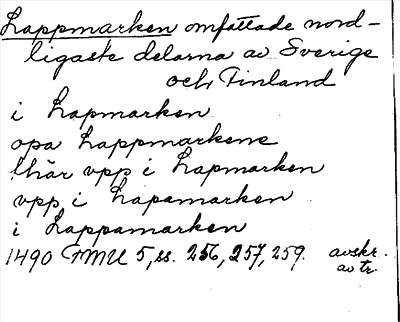 Lappmarken omfattade nord-
ligaste delarna av Sverige
och Finland
i Lapmarken
opa Lappmarkene
thär vpp i Lapmarken
vpp i Lapamarken
i Lappamarken
1490 FMU 5, ss. 256, 257, 259. avskr. av tr.